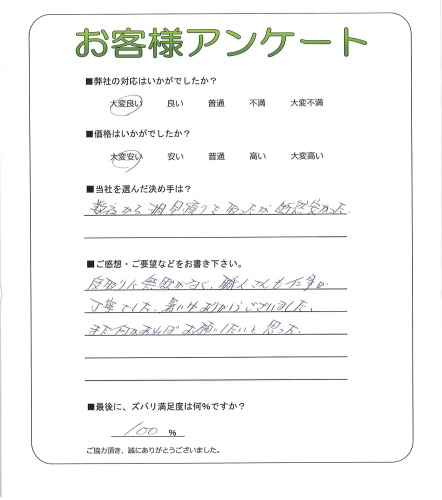 お客様アンケート
■弊社の対応はいかがでしたか？
大変良い 良い 普通 不満 大変不満
■価格はいかがでしたか？
大変安い 安い 普通 高い 大変高い
■当社を選んだ決め手は？
数者から相見積りを取ったが断然安かった.
■ご感想・ご要望などをお書き下さい。
段取りに無駄がなく、職人さんも仕事が
丁寧でした. 暑い中ありがとうございました.
また何かあればお願いしたいと思った.
■最後に、ズバリ満足度は何%ですか？
100 %
ご協力頂き、誠にありがとうございました。